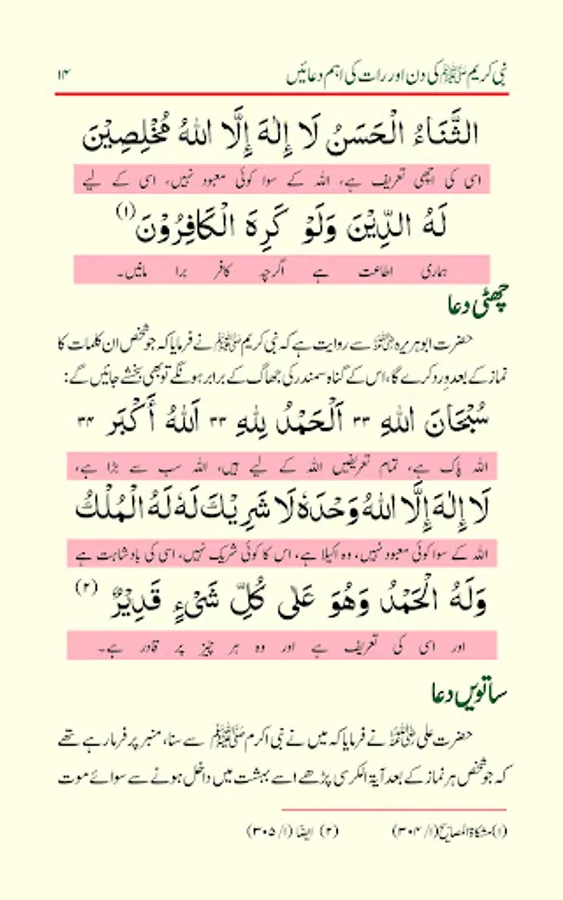 نبی کریم ﷺ کی دن اور رات کی اہم دعائیں ۱۴
الثَّنَاءُ الْحَسَنُ لَا إِلٰهَ إِلَّا اللهُ مُخْلِصِيْنَ
اسی کی اچھی تعریف ہے، اللہ کے سوا کوئی معبود نہیں، اسی کے لیے
لَهُ الدِّيْنَ وَلَوْ كَرِهَ الْكَافِرُوْنَ (۱)
ہماری اطاعت ہے اگرچہ کافر برا مانیں۔
چھٹی دعا
حضرت ابوہریرہ رضی اللہ عنہ سے روایت ہے کہ نبی کریم ﷺ نے فرمایا کہ جو شخص ان کلمات کا
نماز کے بعد ورد کرے گا، اس کے گناہ سمندر کی جھاگ کے برابر ہونگے تو بھی بخشے جائیں گے:
سُبْحَانَ اللهِ ۳۳ اَلْحَمْدُ لِلهِ ۳۳ اَللهُ أَكْبَر ۳۴
اللہ پاک ہے، تمام تعریفیں اللہ کے لیے ہیں، اللہ سب سے بڑا ہے،
لَا إِلٰهَ إِلَّا اللهُ وَحْدَهٗ لَا شَرِيْكَ لَهٗ لَهُ الْمُلْكُ
اللہ کے سوا کوئی معبود نہیں، وہ اکیلا ہے، اس کا کوئی شریک نہیں، اسی کی بادشاہت ہے
وَلَهُ الْحَمْدُ وَهُوَ عَلٰى كُلِّ شَيْءٍ قَدِيْرٌ (۲)
اور اسی کی تعریف ہے اور وہ ہر چیز پر قادر ہے۔
ساتویں دعا
حضرت علی رضی اللہ عنہ نے فرمایا کہ میں نے نبی اکرم ﷺ سے سنا، منبر پر فرما رہے تھے
کہ جو شخص ہر نماز کے بعد آیۃ الکرسی پڑھے اسے بہشت میں داخل ہونے سے سوائے موت
(۱) مشکاۃ المصابیح (۱/ ۳۰۴) (۲) ایضًا (۱/ ۳۰۵)